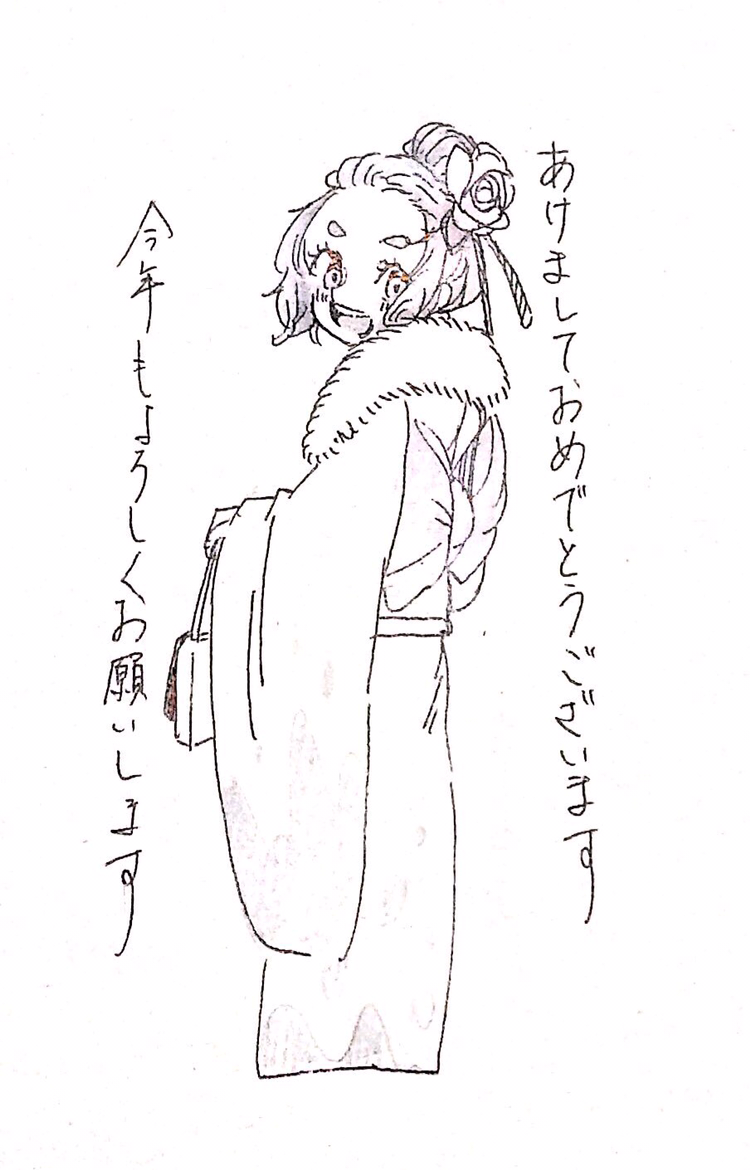 あけましておめでとうございます
今年もよろしくお願いします